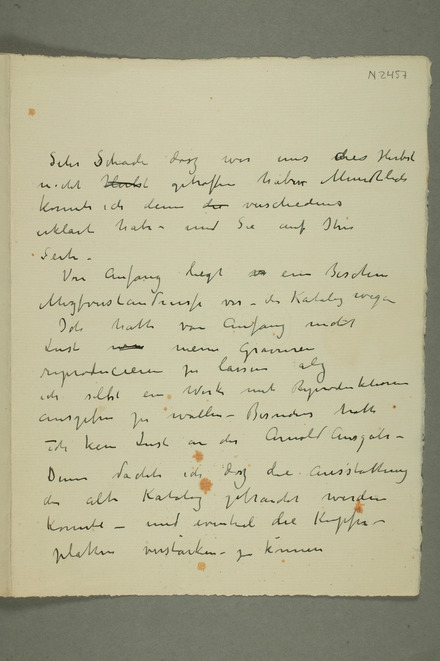 N 2457
Sehr Schade dasz wir uns dies Herbst
nicht Herbst getroffen haben Mundtlich
konnte ich denn die verschiednes
erklärt habe – und Sie auf Ihre
Seite –
Von Anfang liegt ein Bischen
Miszverständnisse vor – des Katalog wegen
Ich hatte von Anfang nicht
Lust meine Gravuren
reproducieren zu lassen als
ich selbst ein Werk mit Reproduktionen
ausgeben zu wollen – Besonders hatte
ich kein Lust an der Arnold Ausgabe –
Denn dachte ich dasz die Ausstattung
der alte Katalog gebraucht werden
konnte – und eventuel die Kupfer–
platten verstärken – zu können